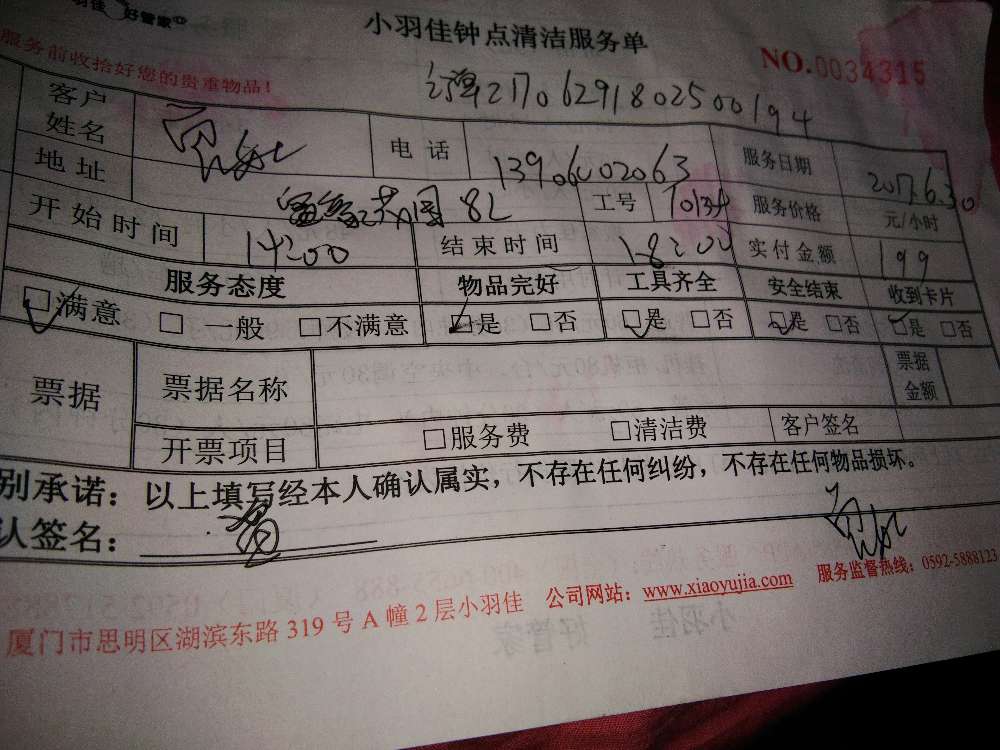 羽佳 好管家
小羽佳钟点清洁服务单
NO.0034315
服务前收拾好您的贵重物品!
订单21706291802500194
客户姓名 电话 13906002063 服务日期 2017.6.30
地址 8L 工号 服务价格 元/小时
开始时间 14:00 结束时间 18:00 实付金额 199
服务态度 物品完好 工具齐全 安全结束 收到卡片
满意 一般 不满意 是 否 是 否 是 否 是 否
票据 票据名称 票据金额
开票项目 服务费 清洁费 客户签名
别承诺:以上填写经本人确认属实,不存在任何纠纷,不存在任何物品损坏。
认签名:
厦门市思明区湖滨东路 319 号 A 幢 2 层小羽佳 公司网站:www.xiaoyujia.com 服务监督热线:0592-5888123